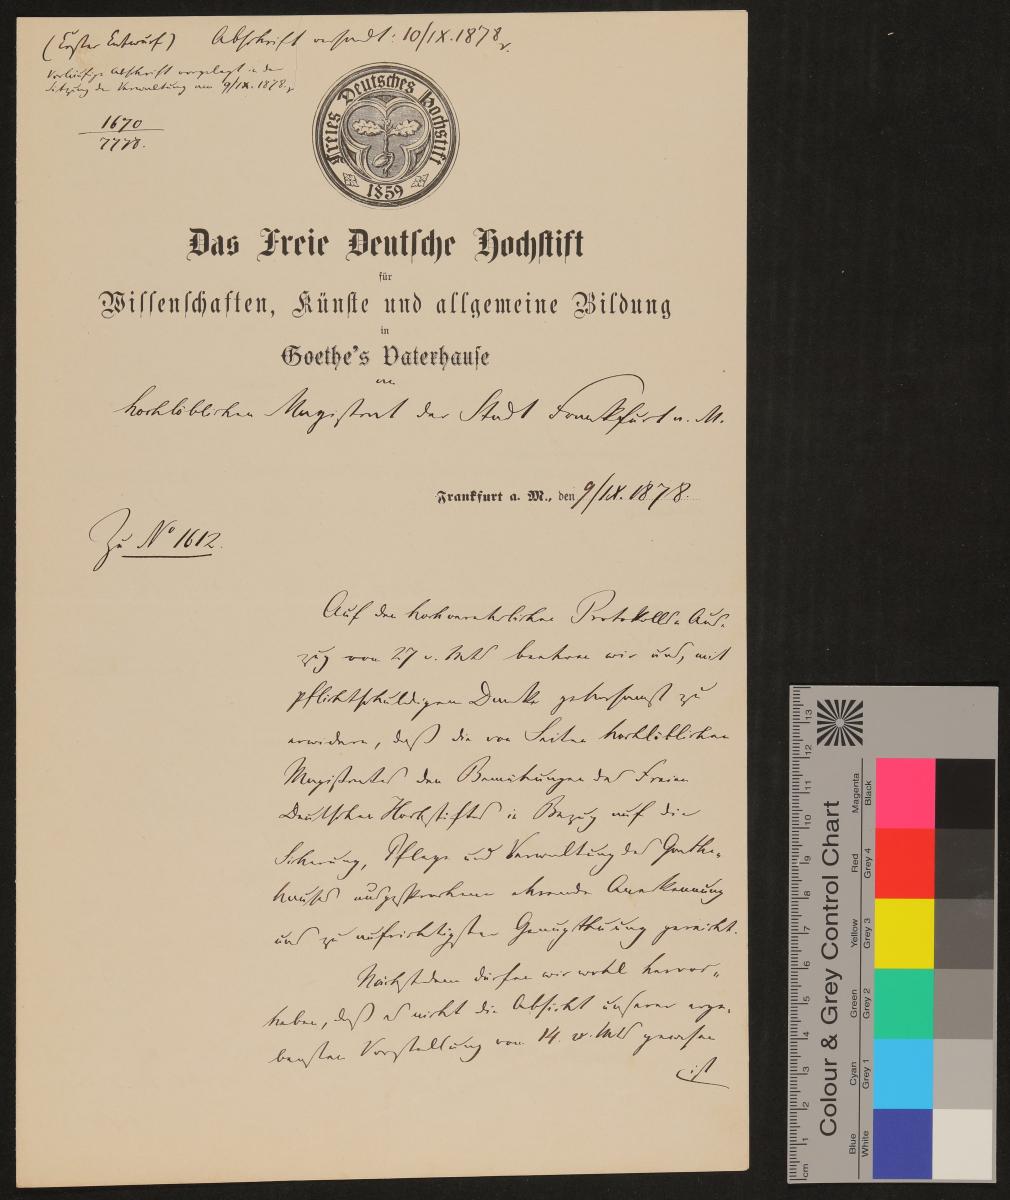 (Erster Entwurf) Abschrift versandt: 10/IX.1878.
Vorläufige Abschrift vorgelegt in der
Sitzung der Verwaltung am 9/IX.1878.
1670
7778.
Freies Deutsches Hochstift
1859
Das Freie Deutsche Hochstift
für
Wissenschaften, Künste und allgemeine Bildung
in
Goethe's Vaterhause
an
hochlöblichen Magistrat der Stadt Frankfurt a. M.
Frankfurt a. M., den 9/IX.1878.
Zu No 1612.
Auf den hochverehrlichen Protokolls-Aus-
zug vom 27 v. Mts beehren wir uns, mit
pflichtschuldigem Danke gehorsamst zu
erwidern, daß die von Seiten hochlöblichen
Magistrates den Bemühungen des Freien
Deutschen Hochstiftes in Bezug auf die
Sicherung, Pflege und Verwaltung des Goethe-
hauses ausgesprochene ehrende Anerkennung
uns zu aufrichtigster Genugthuung gereicht.
Nächstdem dürfen wir wohl hervor-
heben, daß es nicht die Absicht unserer erge-
bensten Vorstellung vom 14. v. Mts gewesen
ist
Colour & Grey Control Chart
Blue Cyan Green Yellow Red Magenta
White Grey 1 Grey 2 Grey 3 Grey 4 Black
cm 1 2 3 4 5 6 7 8 9 10 11 12 13